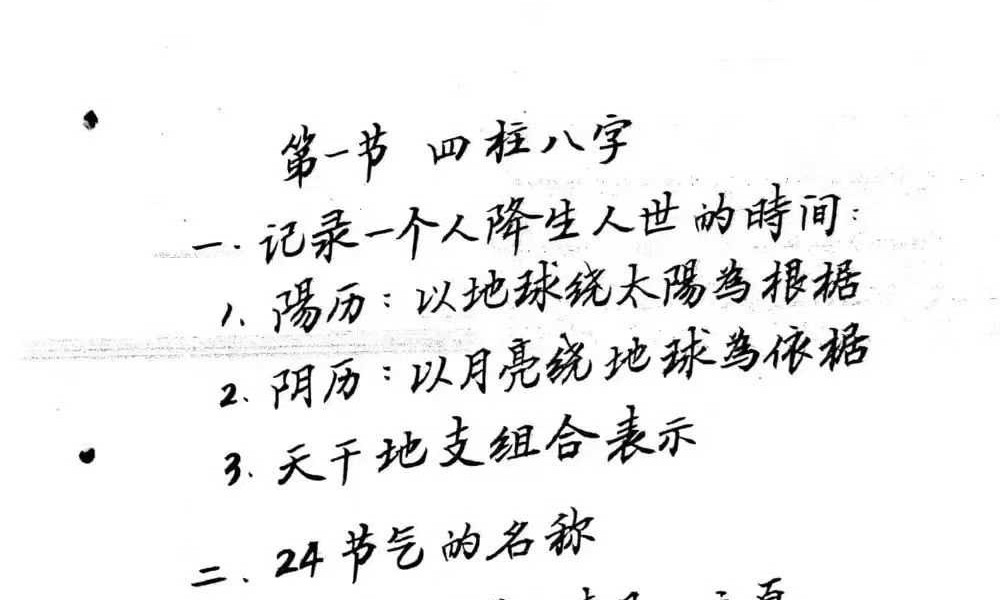 第一节 四柱八字
一.记录一个人降生人世的時间:
1.陽历:以地球绕太陽為根据
2.阴历:以月亮绕地球為依据
3.天干地支组合表示
二.24节气的名称